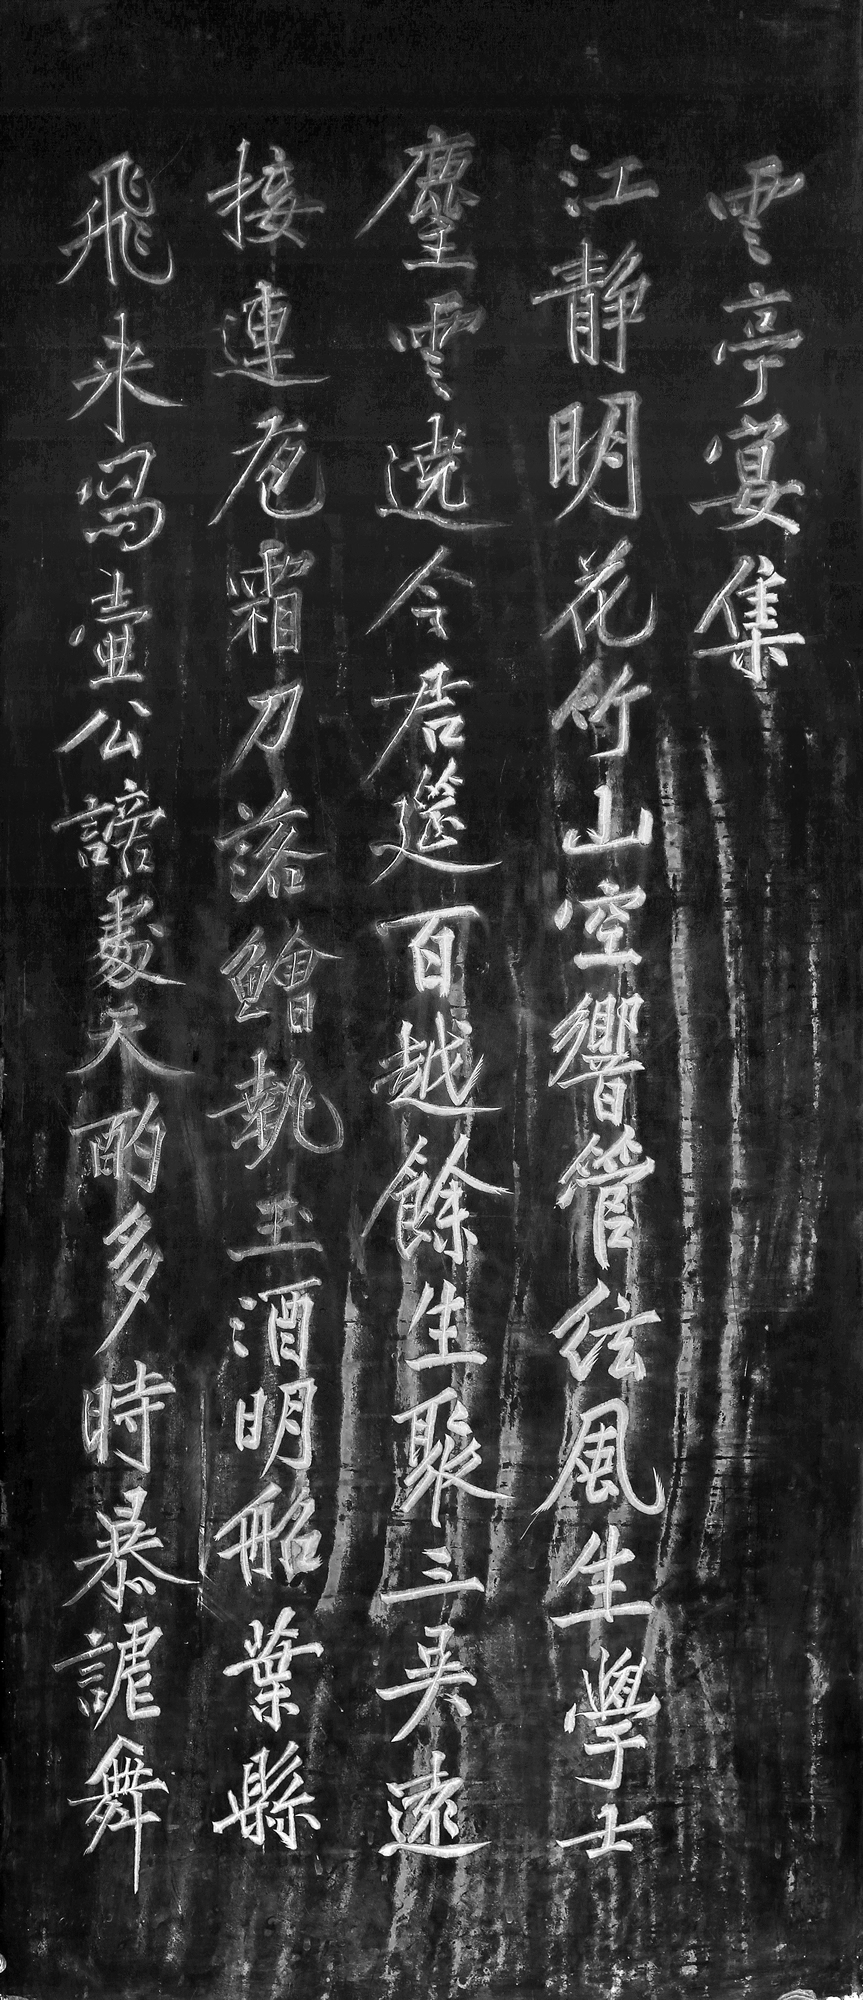 雲亭宴集
江静明花竹山空響管絃風生學士
麈雲遶令君筵百越餘生聚三吳遠
接連庖霜刀落鱠執玉酒明船葉縣
飛来舄壺公謫處天酌多時暴謔舞